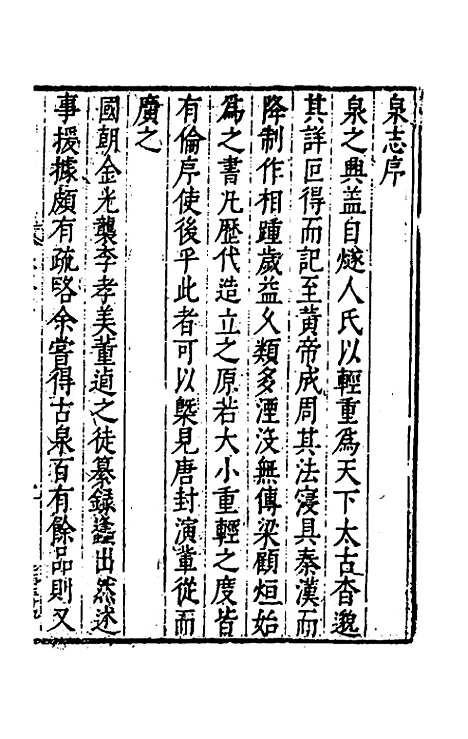 泉志序
泉之興盖自燧人氏以輕重爲天下太古杳邈
其詳叵得而記至黃帝成周其法寖具秦漢而
降制作相踵歲益久類多湮没無傳梁顧烜始
爲之書凡歷代造立之原若大小重輕之度皆
有倫序使後乎此者可以槩見唐封演軰從而
廣之
國朝金光襲李孝美董逌之徒纂録蠭出然述
事援據頗有疏略余嘗得古泉百有餘品則又